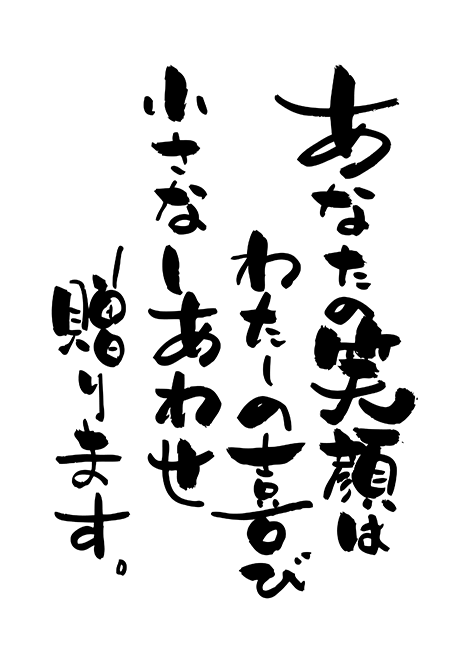 あなたの笑顔は
わたしの喜び
小さなしあわせ
贈ります。